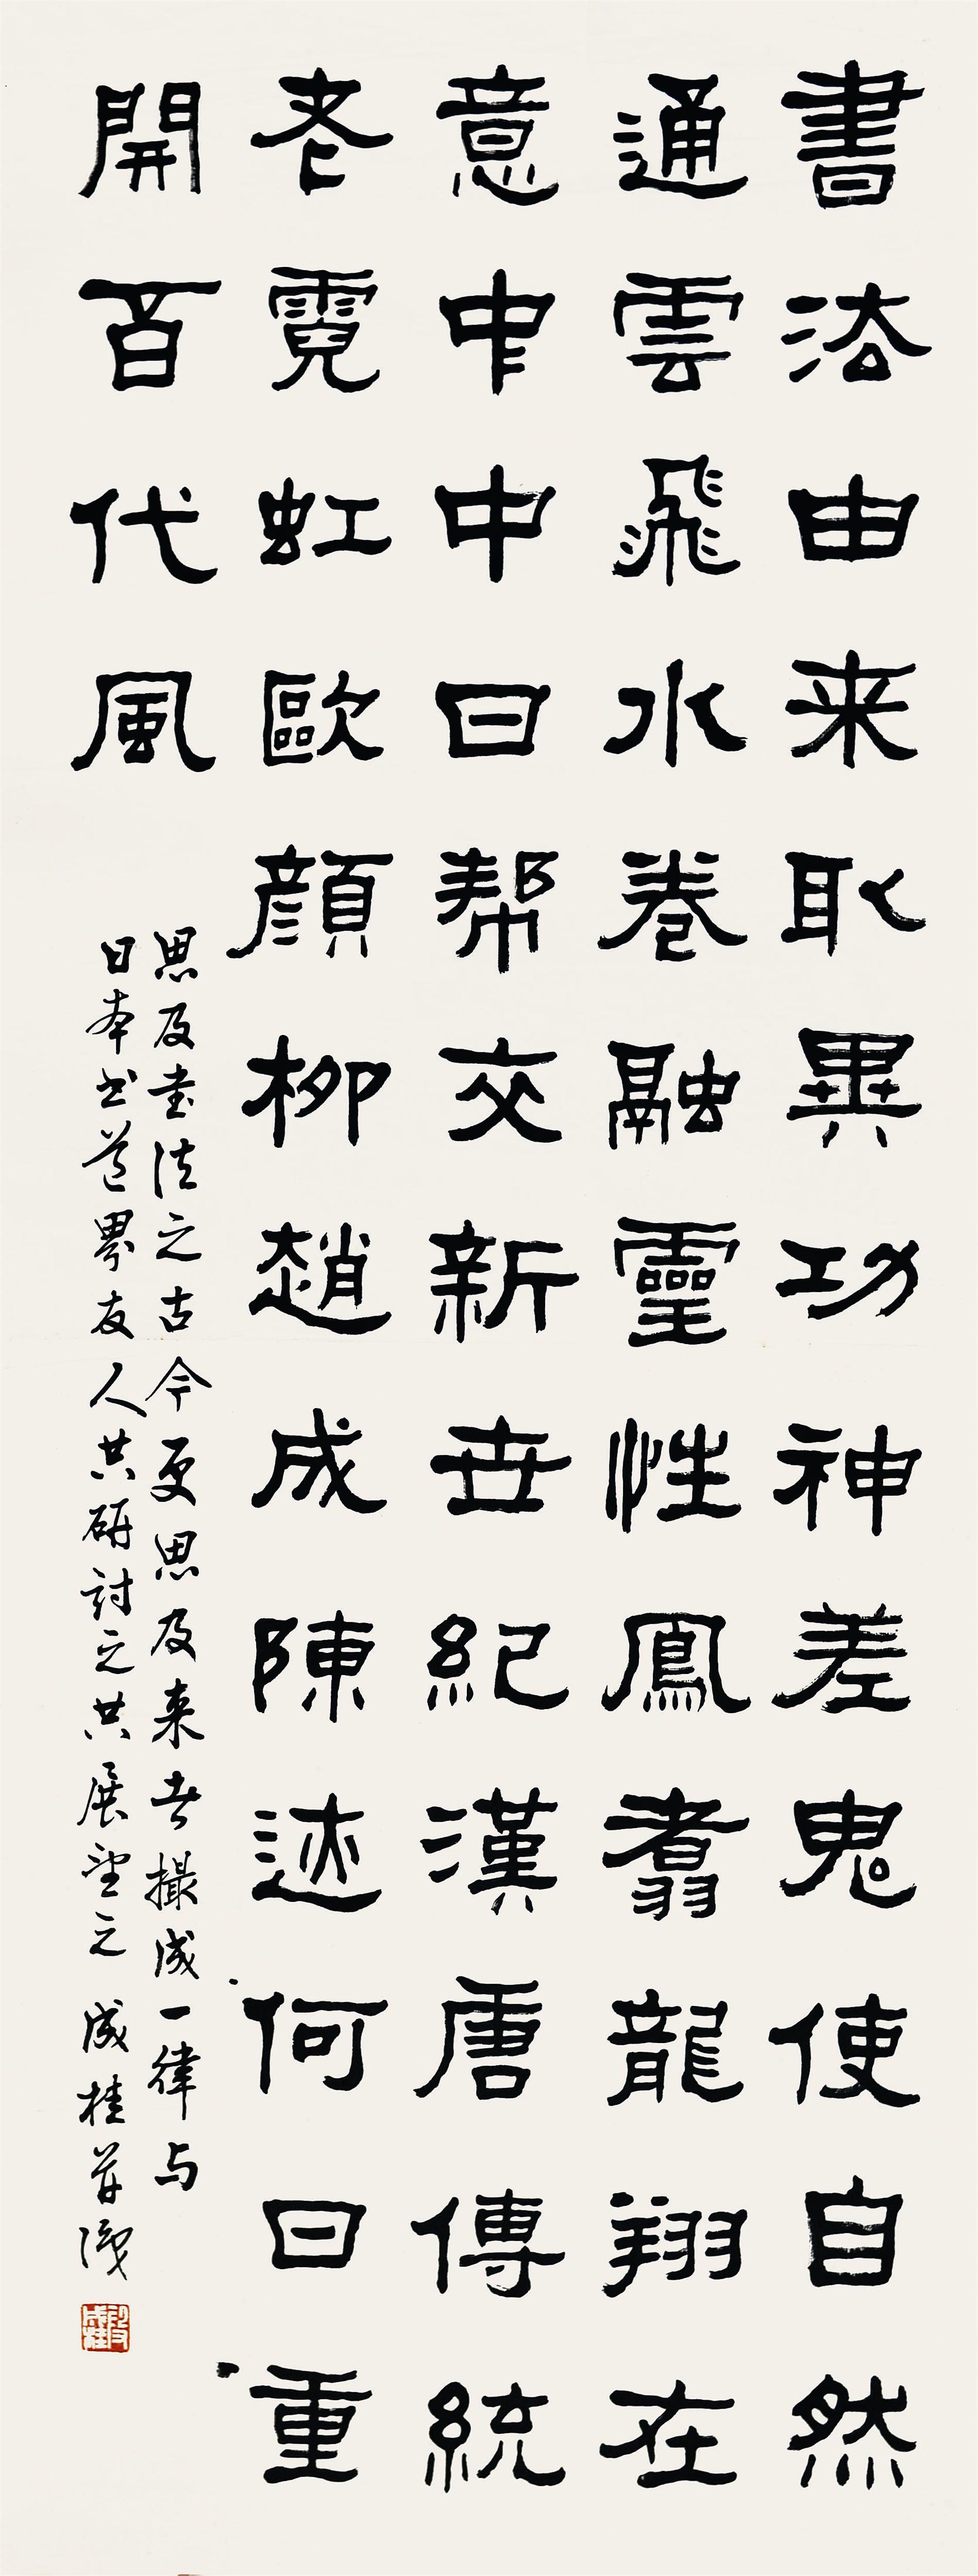 書法由来取異功神差鬼使自然
通雲飛水卷融靈性鳳翥龍翔在
意中中日帮交新世紀漢唐傳統
老霓虹歐顏柳趙成陳迹何日重
開百代風
思及書法之古今更思及来者撮成一律与
日本书道界友人共研討之共展望之 成桂并識
段成桂